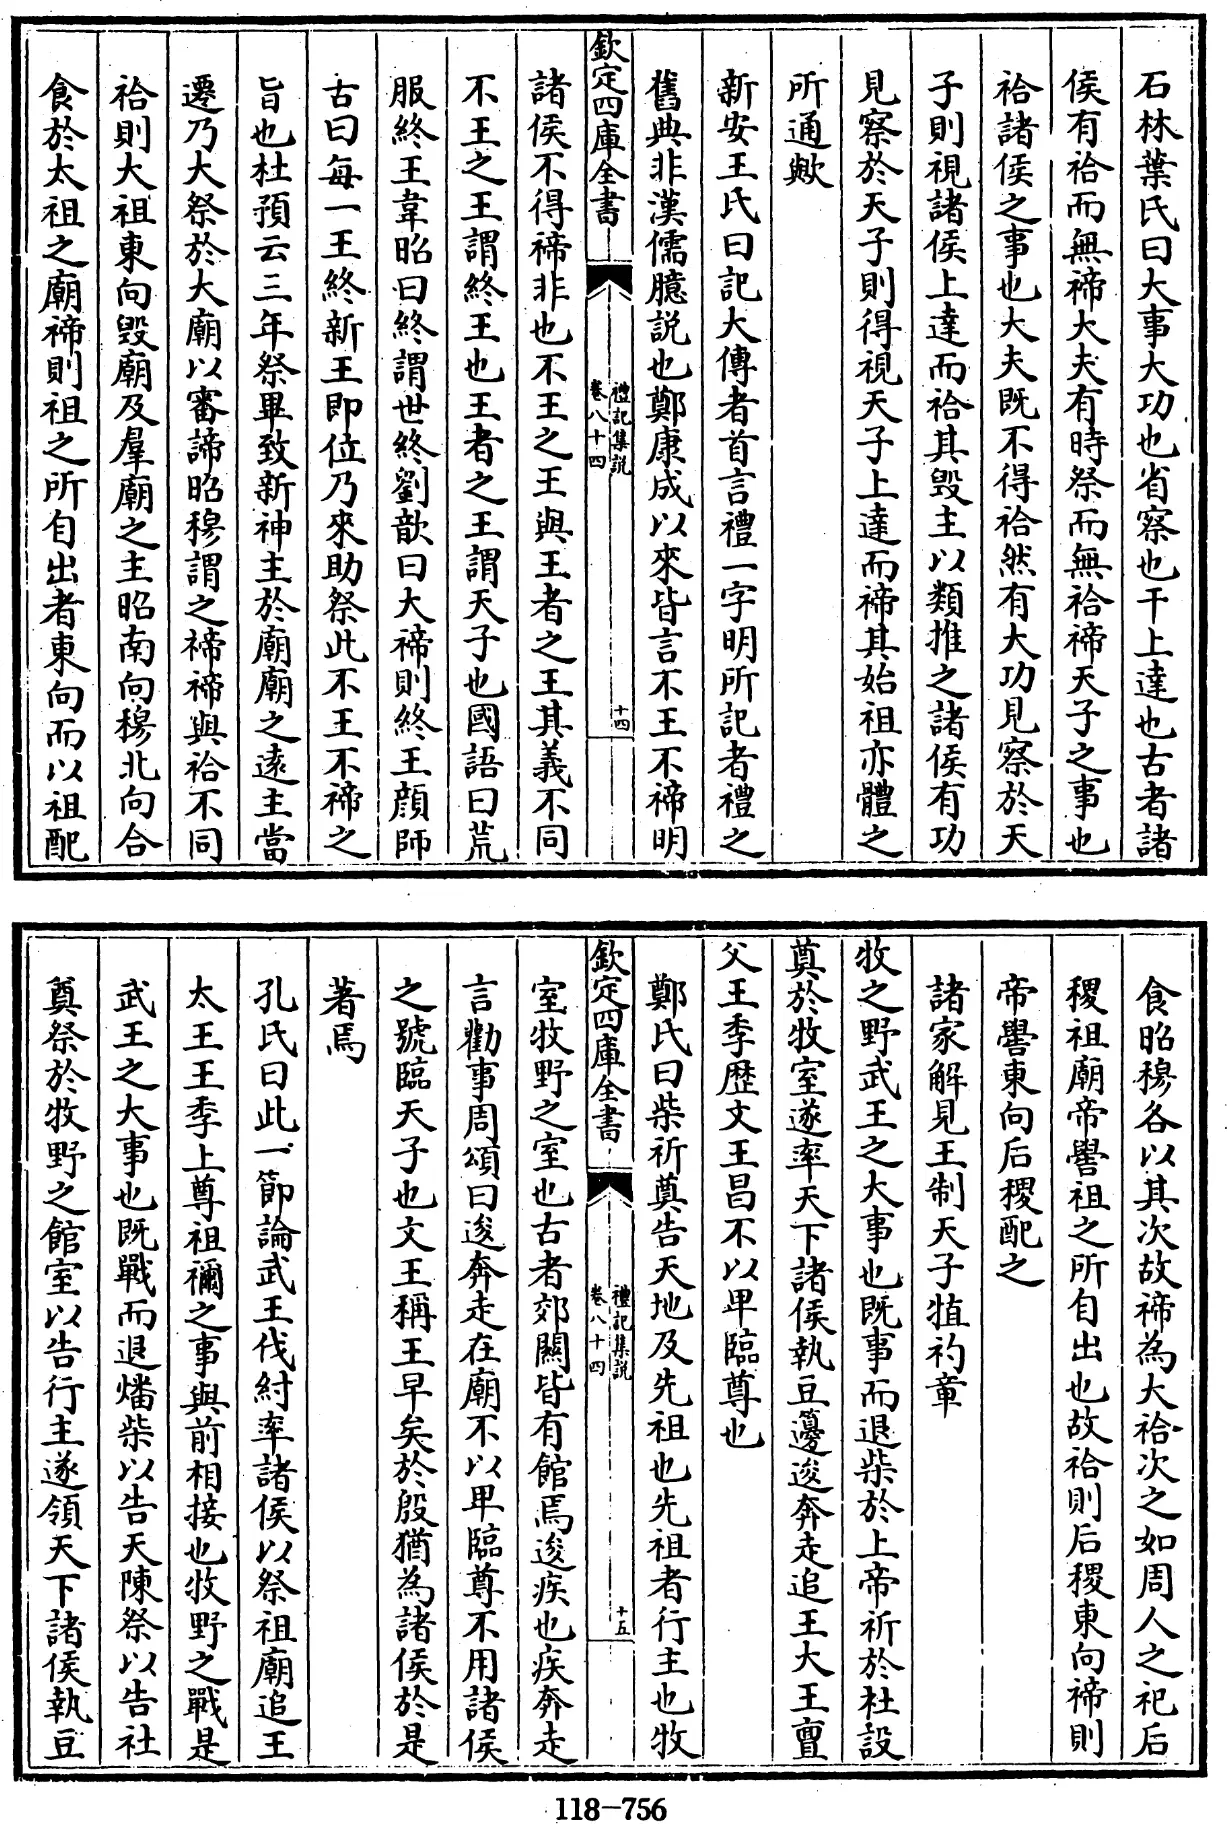 石林葉氏曰大事大功也省察也干上達也古者諸
侯有祫而無禘大夫有時祭而無祫禘天子之事也
祫諸侯之事也大夫既不得祫然有大功見察於天
子則視諸侯上達而祫其毀主以類推之諸侯有功
見察於天子則得視天子上達而禘其始祖亦體之
所通歟
新安王氏曰記大傳者首言禮一字明所記者禮之
舊典非漢儒臆說也鄭康成以來皆言不王不禘明
欽定四庫全書
禮記集說
卷八十四
十四
諸侯不得禘非也不王之王與王者之王其義不同
不王之王謂終王也王者之王謂天子也國語曰荒
服終王韋昭曰終謂世終劉歆曰大禘則終王顔師
古曰每一王終新王即位乃來助祭此不王不禘之
旨也杜預云三年祭畢致新神主於廟廟之遠主當
遷乃大祭於大廟以審諦昭穆謂之禘禘與祫不同
祫則大祖東向毀廟及羣廟之主昭南向穆北向合
食於太祖之廟禘則祖之所自出者東向而以祖配
食昭穆各以其次故禘為大祫次之如周人之祀后
稷祖廟帝嚳祖之所自出也故祫則后稷東向禘則
帝嚳東向后稷配之
諸家解見王制天子犆礿章
牧之野武王之大事也既事而退柴於上帝祈於社設
奠於牧室遂率天下諸侯執豆籩逡奔走追王大王亶
父王季歷文王昌不以卑臨尊也
鄭氏曰柴祈奠告天地及先祖也先祖者行主也牧
欽定四庫全書
禮記集說
卷八十四
十五
室牧野之室也古者郊關皆有館焉逡疾也疾奔走
言勸事周頌曰逡奔走在廟不以卑臨尊不用諸侯
之號臨天子也文王稱王早矣於殷猶為諸侯於是
著焉
孔氏曰此一節論武王伐紂率諸侯以祭祖廟追王
太王王季上尊祖禰之事與前相接也牧野之戰是
武王之大事也既戰而退燔柴以告天陳祭以告社
奠祭於牧野之館室以告行主遂領天下諸侯執豆
118-756